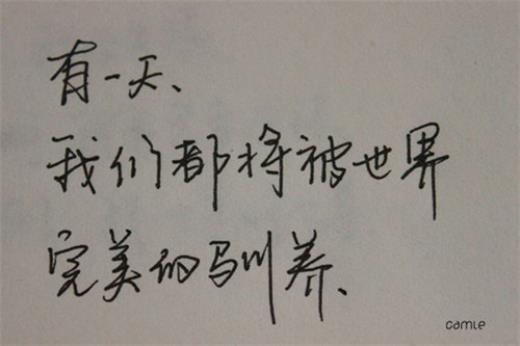 有一天、
我们都将被世界
完美的驯养、
camle